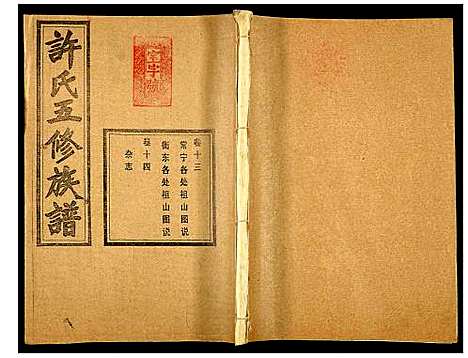 許氏五修族譜
卷十三
常宁各处祖山图说
衡东各处祖山图说
卷十四
杂志